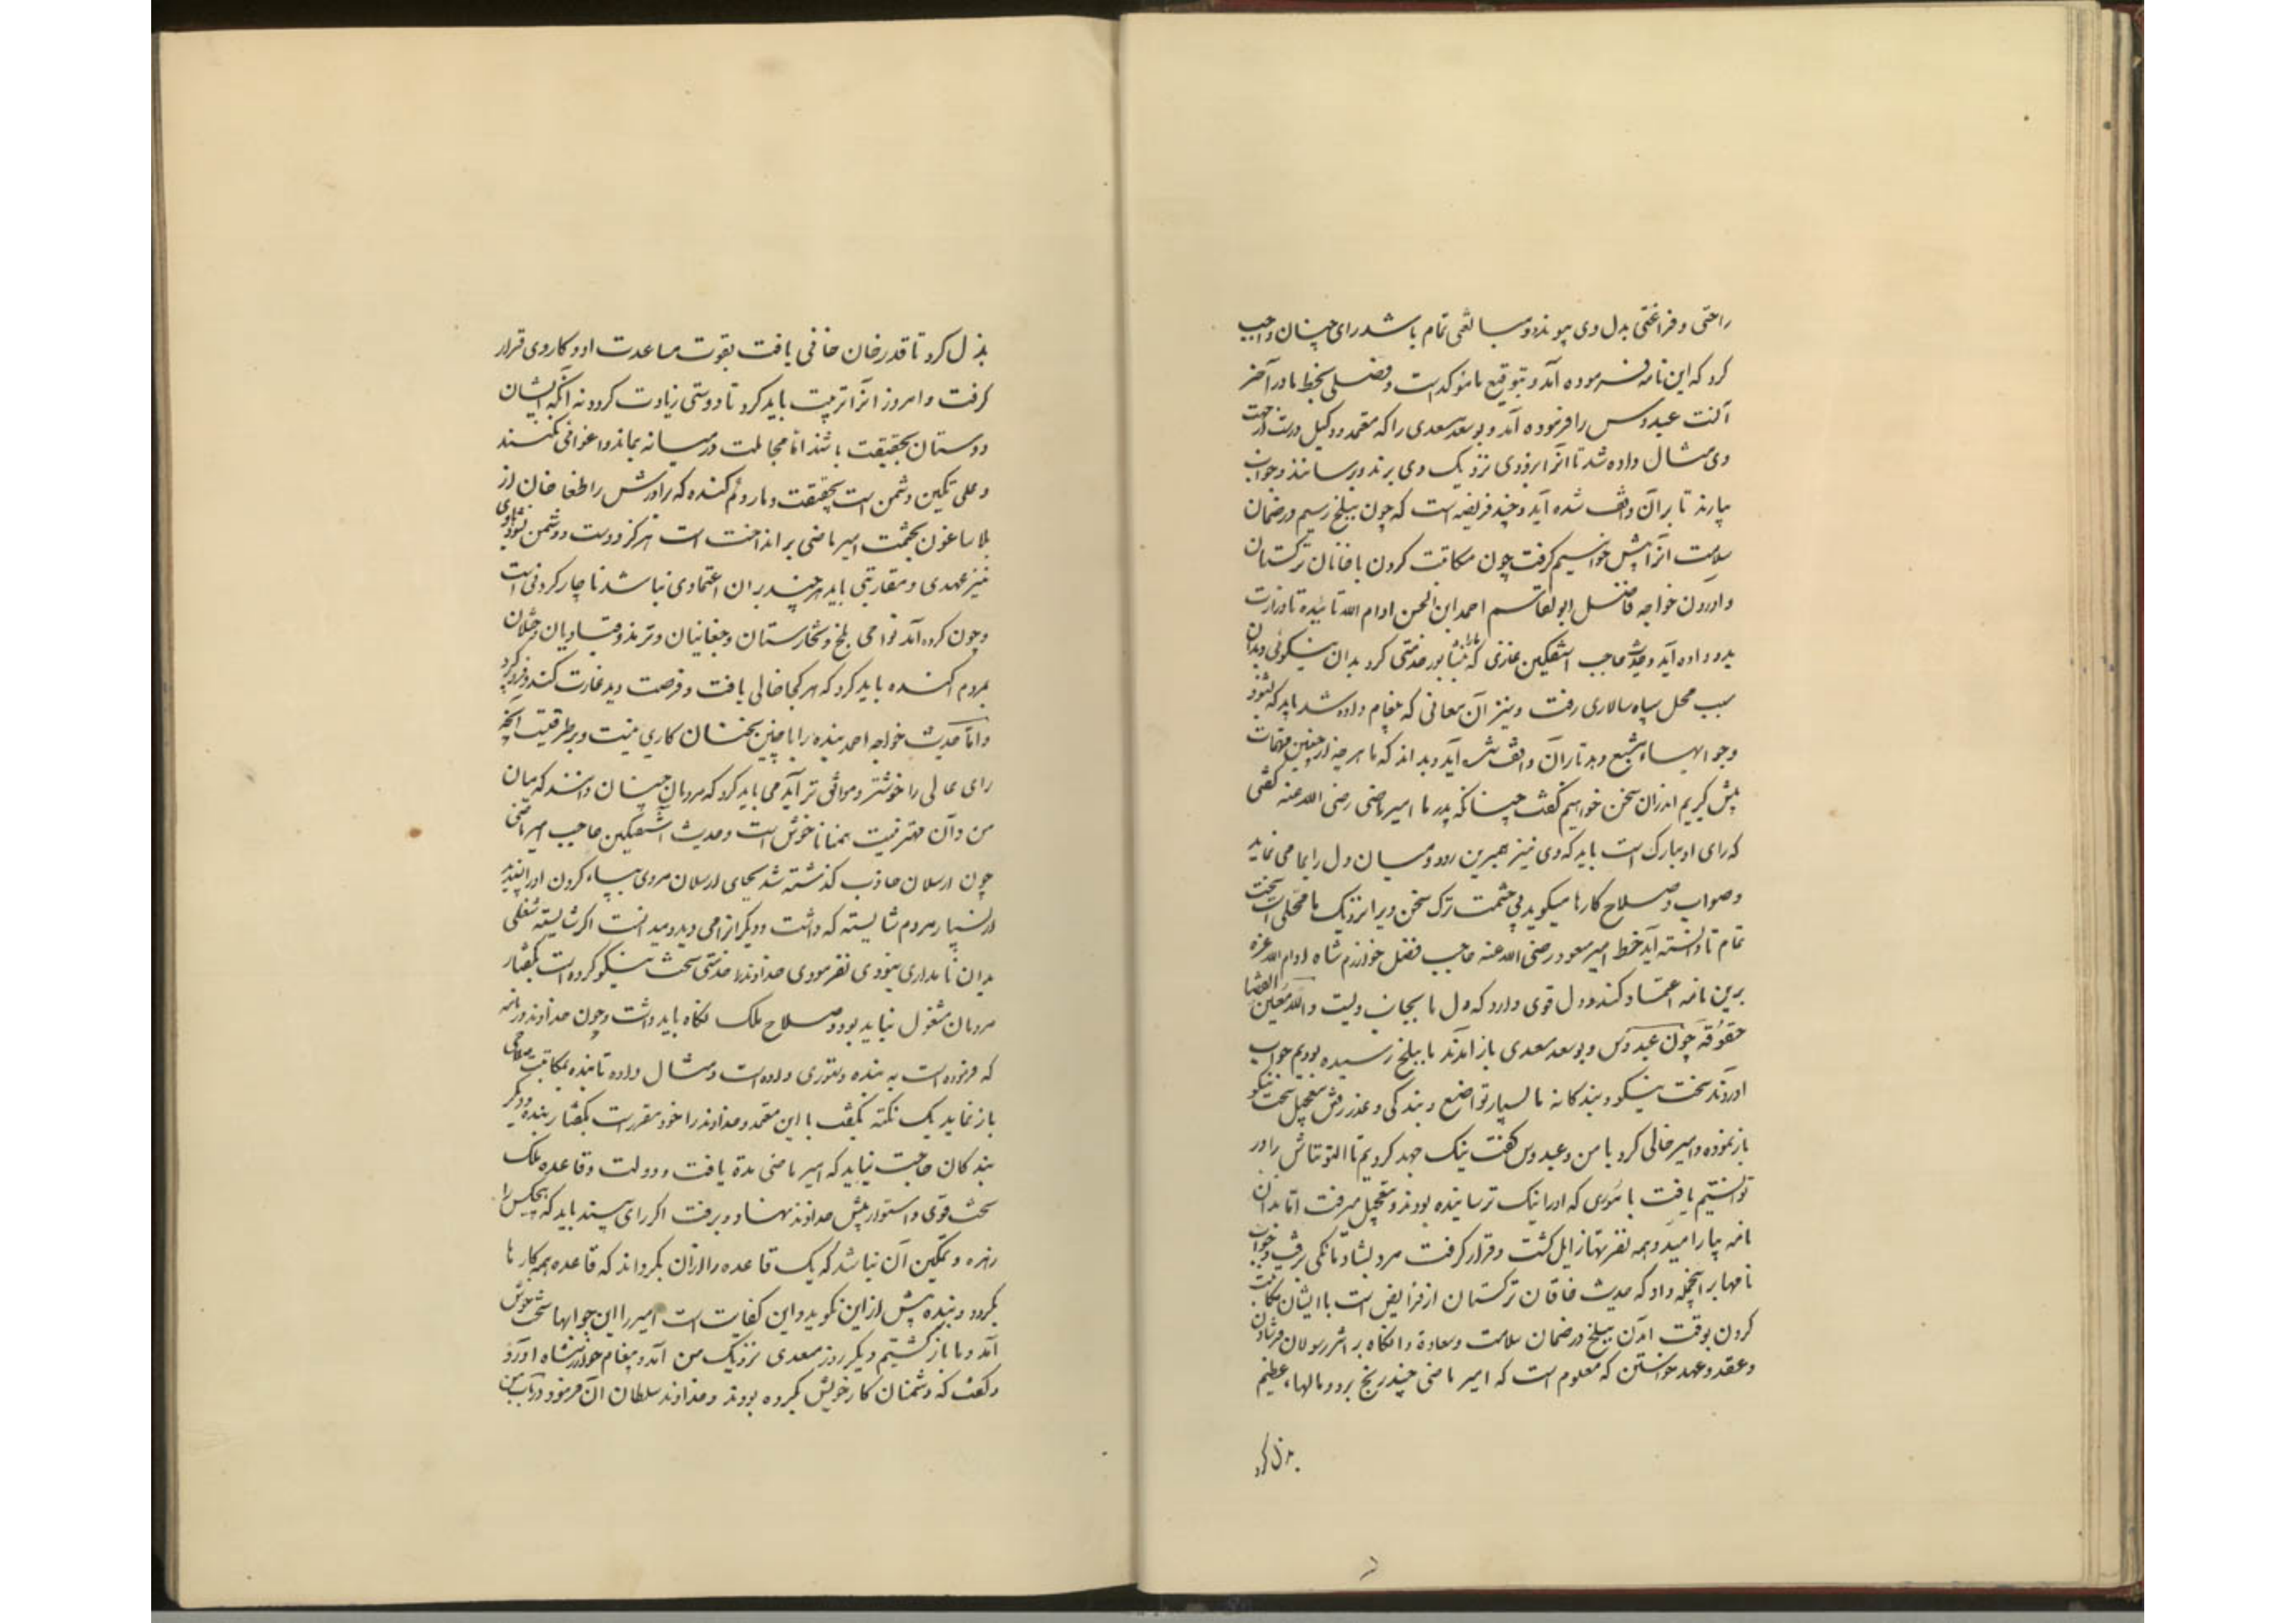 راحتی و فراغتی بدل وی پیوندد و مبالغتی تمام باشد رای چنان واجب
کرد که این نامه فرموده آمد و بتوقیع ما مؤکد است و فصلی بخط ما در آخر
آنست عبدوس را فرموده آمد و بوسعد سعدی را که معتمد و وکیل درست از جهت
وی مثال داده شد تا آنرا بزودی نزدیک وی برند و برسانند و جواب
بیارند تا بر آن واقف شده آید و چند فریضه است که چون ببلخ رسیم در ضمان
سلامت آنرا پیش خواهیم گرفت چون مکاتبت کردن با خانان ترکستان
و آوردن خواجه فاضل ابوالقاسم احمد ابن الحسن ادام الله تائیده تا وزارت
بدو داده آید و حدیث حاجب آسفتکین غازی که ما را بنشابور خدمتی کرد بدان نیکوئی و بدان
سبب محل سپاه سالاری یافت و نیز آن معانی که پیغام داده شد باید که بشنود
و جوابهاء مشبع دهد تا بر آن واقف شده آید و بداند که ما هر چه از چنین مهمات
پیش گیریم اندر آن سخن خواهیم گفت چنانکه پدر ما امیر ماضی رضی الله عنه گفتی
که رای او مبارک است باید که وی نیز هم برین رود و میان دل را بما می نماید
و صواب و صلاح کارها میگوید بی حشمت ترک سخن ویرا نزدیک ما محلی است سخت
تمام تا دانسته آید خط امیر مسعود رضی الله عنه حاجب فاضل خوارزم شاه ادام الله عزه
برین نامه اعتماد کند و دل قوی دارد که دل ما بجانب ویست و الله معین القضا
حقوقه چون عبدوس و بوسعد سعدی باز آمدند ما ببلخ رسیده بودیم جواب
آوردند سخت نیکو و بندگانه با بسیار تواضع و بندگی و عذر رفتن بتعجیل سخت نیکو
باز نموده و امیر خالی کرد با من و عبدوس گفت نیک جهد کردیم تا آلتونتاش را در
توانستیم یافت با شوری که او را نیک ترسانیده بودند و بتعجیل میرفت اما بدان
نامه بیارامید و همه نفرتها زایل گشت و قرار گرفت مرد بشادمانگی برفت و جواب
نامها بر آنجمله داد که حدیث خاقان ترکستان از فرایض است با ایشان مکاتبت
کردن بوقت آمدن ببلخ در ضمان سلامت و سعادة و آنگاه بر اثر رسولان فرستادن
و عقد و عهد خواستن که معلوم است که امیر ماضی چند رنج برد و مالهاء عظیم
بذل کرد
بذل کرد تا قدر خان خانی یافت بقوت مساعدت او و کار وی قرار
گرفت و امروز آنرا تربیت باید کرد تا دوستی زیادت گردد نه آنکه ایشان
دوستان بحقیقت باشند اما مجاملت در میانه بماند و اغوائی نکنند
و علی تکین دشمن است بحقیقت و مار دم کنده که برادرش را طغا خان از
بلاساغون بحشمت امیر ماضی بر انداخت است هرگز دوست دشمن نشود با وی
نیز عهدی و مقاربتی باید هر چند بر آن اعتمادی نباشد ناچار کردنی است
و چون کرده آمد نواحی بلخ و تخارستان و چغانیان و ترمذ و قبادیان و ختلان
بمردم آکنده باید کرد که هر کجا خالی یافت و فرصت دید غارت کند و فرو کوبد
و اما حدیث خواجه احمد بنده را با چنین سخنان کاری نیست و بر طریقیست آنچه
رای عالی را خوشتر و موافق تر آید می باید کرد که مردمان چنان دانند که میان
من و آن مهتر نیست همتا ناخوش است و حدیث آسفتکین حاجب امیر ماضی
چون ارسلان جاذب گذشته شد بجای ارسلان مردی بپاء کردن او را پسندید
از بسیار مردم شایسته که داشت و دیگران را می دید و میدانست اگر شایسته شغلی
بدان نامداری نبودی نفرمودی خداوند را خدمتی سخت نیکو کرده است بگفتار
مردمان مشغول نباید بود و صلاح ملک نگاه باید داشت و چون خداوند در نامه
که فرموده است به بنده دستوری داده است و مثال داده تا بنده بمکاتبت صلاحی
باز نماید یک نکته بگفت با این معتمد و خداوند را خود مقررست بگفتار بنده و دیگر
بندگان حاجت نیاید که امیر ماضی مدة یافت و دولت و قاعده ملک
سخت قوی و استوار پیش خداوند نهاد و برفت اگر رای پسند باید که هیچکس را
زهره و تمکین آن نباشد که یک قاعده را از آن بگرداند که قاعده همه کارها
بگردد و بنده بیش از این نگوید و این کفایت است امیر را این جوابها سخت خوش
آمد و ما باز گشتیم دیگر روز سعدی نزدیک من آمد و پیغام خوارزمشاه آورد
و گفت که دشمنان کار خویش بکرده بودند و خداوند سلطان آن فرمود در باب من